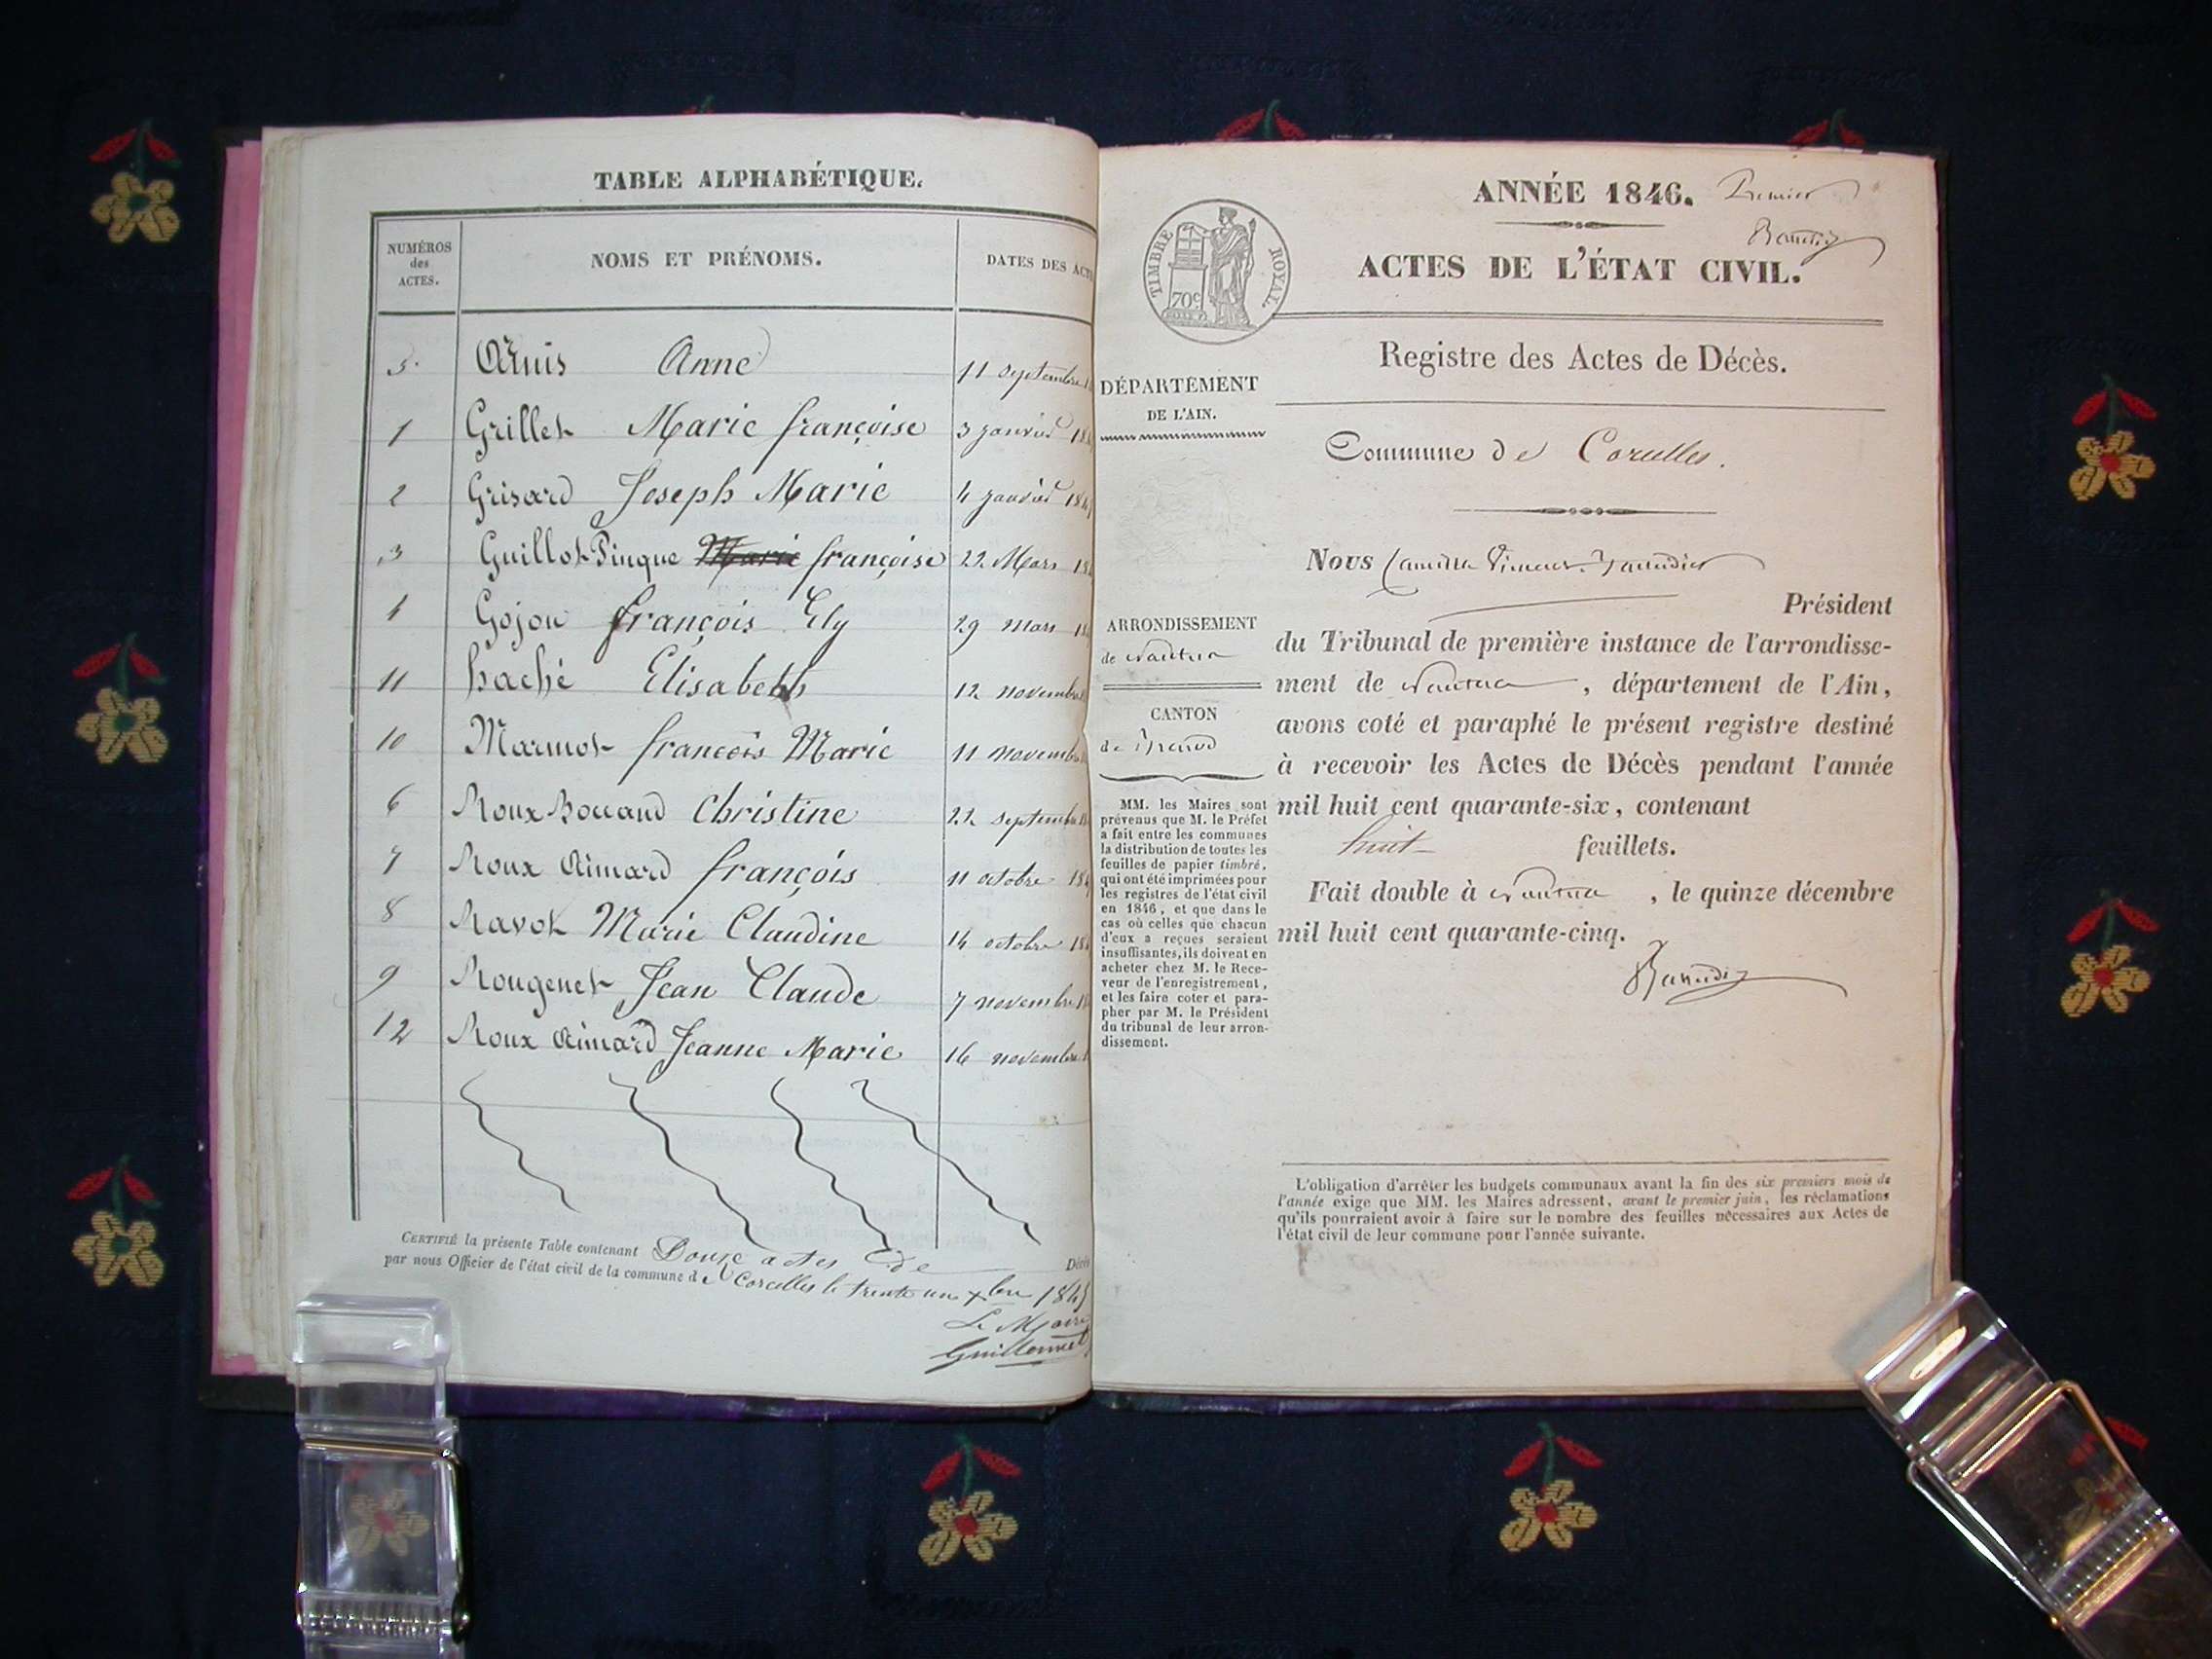 TABLE ALPHABÉTIQUE.
NUMÉROS
des
ACTES.
NOMS ET PRÉNOMS.
DATES DES ACT
5. Anne 11 septembre
1 Grillet Marie françoise 3 janvier 18
2 Grisard Joseph Marie 4 janvier 184
3 Guillot Pinque Marie françoise 22 Mars 18
4 Gojon françois Ely 29 mars 18
11 haché Elisabeth 12 novembre
10 Marmot francois Marie 11 novembre
6 Roux Bouand Christine 22 septembre
7 Roux Aimard françois 11 octobre 184
8 Ravot Marie Claudine 14 octobre 18
9 Rougenet Jean Claude 7 novembre 18
12 Roux Aimard Jeanne Marie 16 novembre
CERTIFIÉ la présente Table contenant Douze actes de Décès
par nous Officier de l'état civil de la commune d Corcelles le trente un xbre 1845
Le Maire
Guillermet
ANNÉE 1846. Premier
TIMBRE ROYAL.
70c
ACTES DE L'ÉTAT CIVIL.
Registre des Actes de Décès.
DÉPARTEMENT
DE L'AIN.
Commune de Corcelles.
Nous Camille
Président
du Tribunal de première instance de l'arrondisse-
ment de Nantua, département de l'Ain,
avons coté et paraphé le présent registre destiné
à recevoir les Actes de Décès pendant l'année
mil huit cent quarante-six, contenant
huit feuillets.
Fait double à Nantua, le quinze décembre
mil huit cent quarante-cinq.
ARRONDISSEMENT
de Nantua
CANTON
de Brenod
MM. les Maires sont
prévenus que M. le Préfet
a fait entre les communes
la distribution de toutes les
feuilles de papier timbré,
qui ont été imprimées pour
les registres de l'état civil
en 1846, et que dans le
cas où celles que chacun
d'eux a reçues seraient
insuffisantes, ils doivent en
acheter chez M. le Rece-
veur de l'enregistrement,
et les faire coter et para-
pher par M. le Président
du tribunal de leur arron-
dissement.
L'obligation d'arrêter les budgets communaux avant la fin des six premiers mois de
l'année exige que MM. les Maires adressent, avant le premier juin, les réclamations
qu'ils pourraient avoir à faire sur le nombre des feuilles nécessaires aux Actes de
l'état civil de leur commune pour l'année suivante.